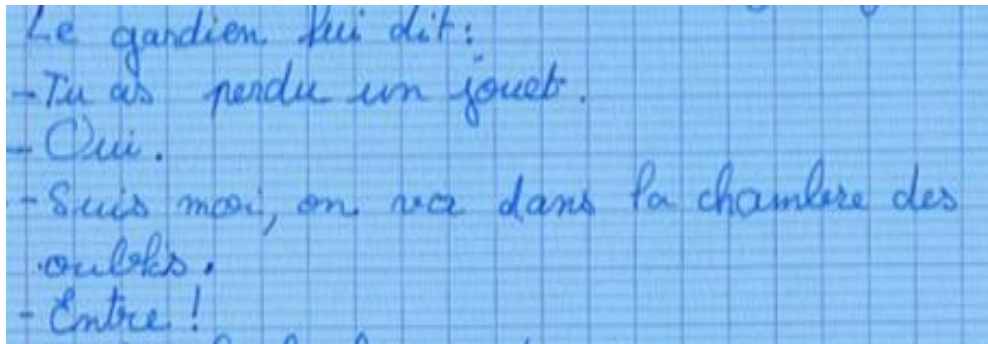 Le gardien lui dit:
- Tu as perdu un jouet.
- Oui.
- Suis moi, on va dans la chambre des
oubliés.
- Entre !